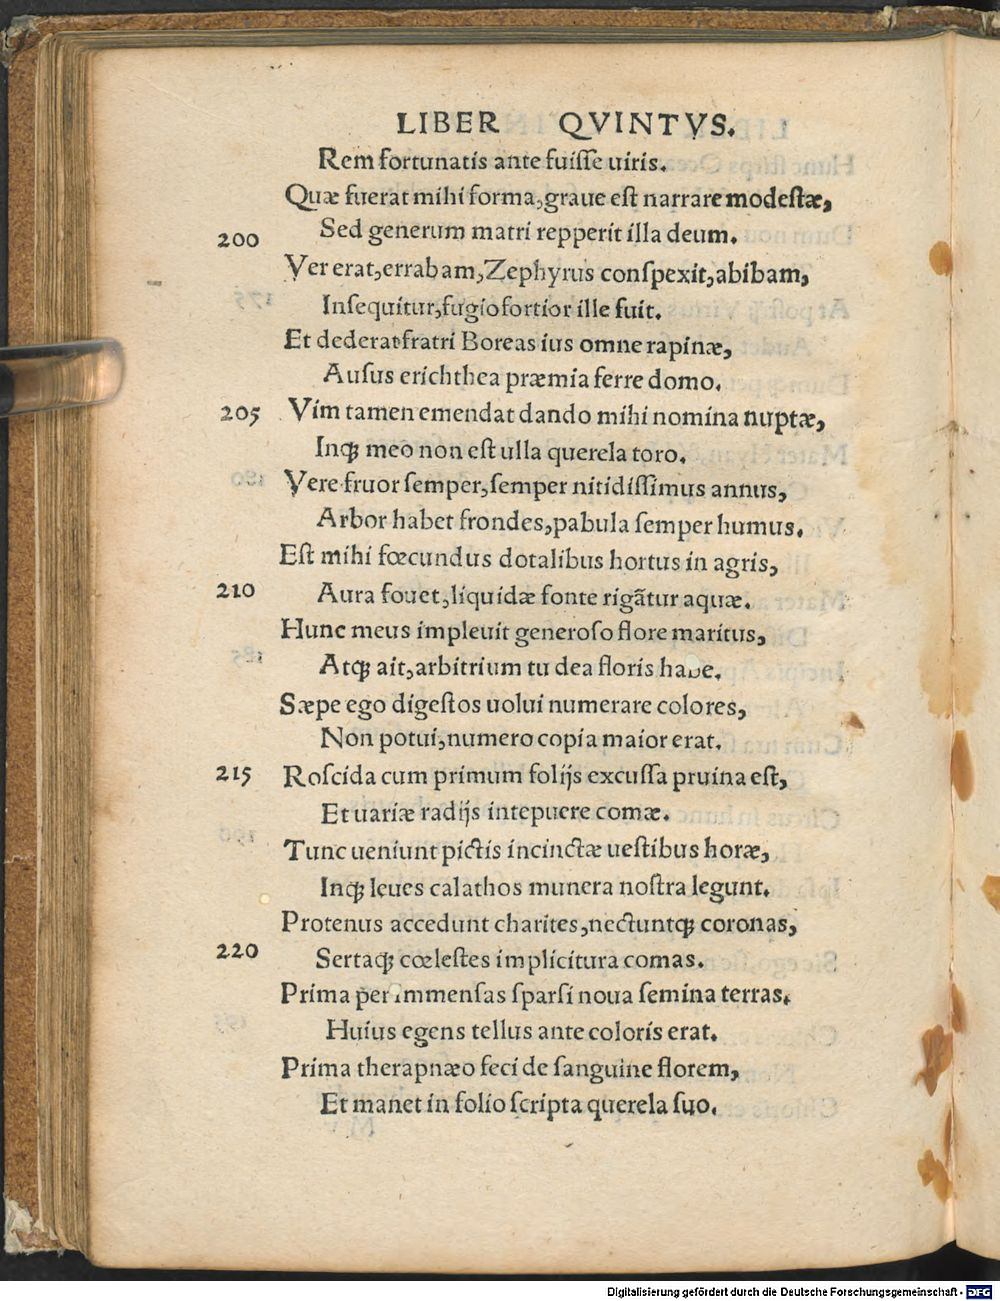 LIBER QVINTVS.
Rem fortunatis ante fuisse uiris.
Quæ fuerat mihi forma, graue est narrare modestæ,
200 Sed generum matri repperit illa deum.
Ver erat, errabam, Zephyrus conspexit, abibam,
Insequitur, fugio fortior ille fuit.
Et dederat fratri Boreas ius omne rapinæ,
Ausus erichthea præmia ferre domo.
205 Vim tamen emendat dando mihi nomina nuptæ,
Inqꝫ meo non est ulla querela toro.
Vere fruor semper, semper nitidissimus annus,
Arbor habet frondes, pabula semper humus.
Est mihi fœcundus dotalibus hortus in agris,
210 Aura fouet, liquidæ fonte rigãtur aquæ.
Hunc meus impleuit generoso flore maritus,
Atqꝫ ait, arbitrium tu dea floris habe.
Sæpe ego digestos uolui numerare colores,
Non potui, numero copia maior erat.
215 Roscida cum primum folijs excussa pruina est,
Et uariæ radijs intepuere comæ.
Tunc ueniunt pictis incinctæ uestibus horæ,
Inqꝫ leues calathos munera nostra legunt.
Protenus accedunt charites, nectuntqꝫ coronas,
220 Sertaqꝫ cœlestes implicitura comas.
Prima per immensas sparsi noua semina terras.
Huius egens tellus ante coloris erat.
Prima therapnæo feci de sanguine florem,
Et manet in folio scripta querela suo.
Digitalisierung gefördert durch die Deutsche Forschungsgemeinschaft - DFG